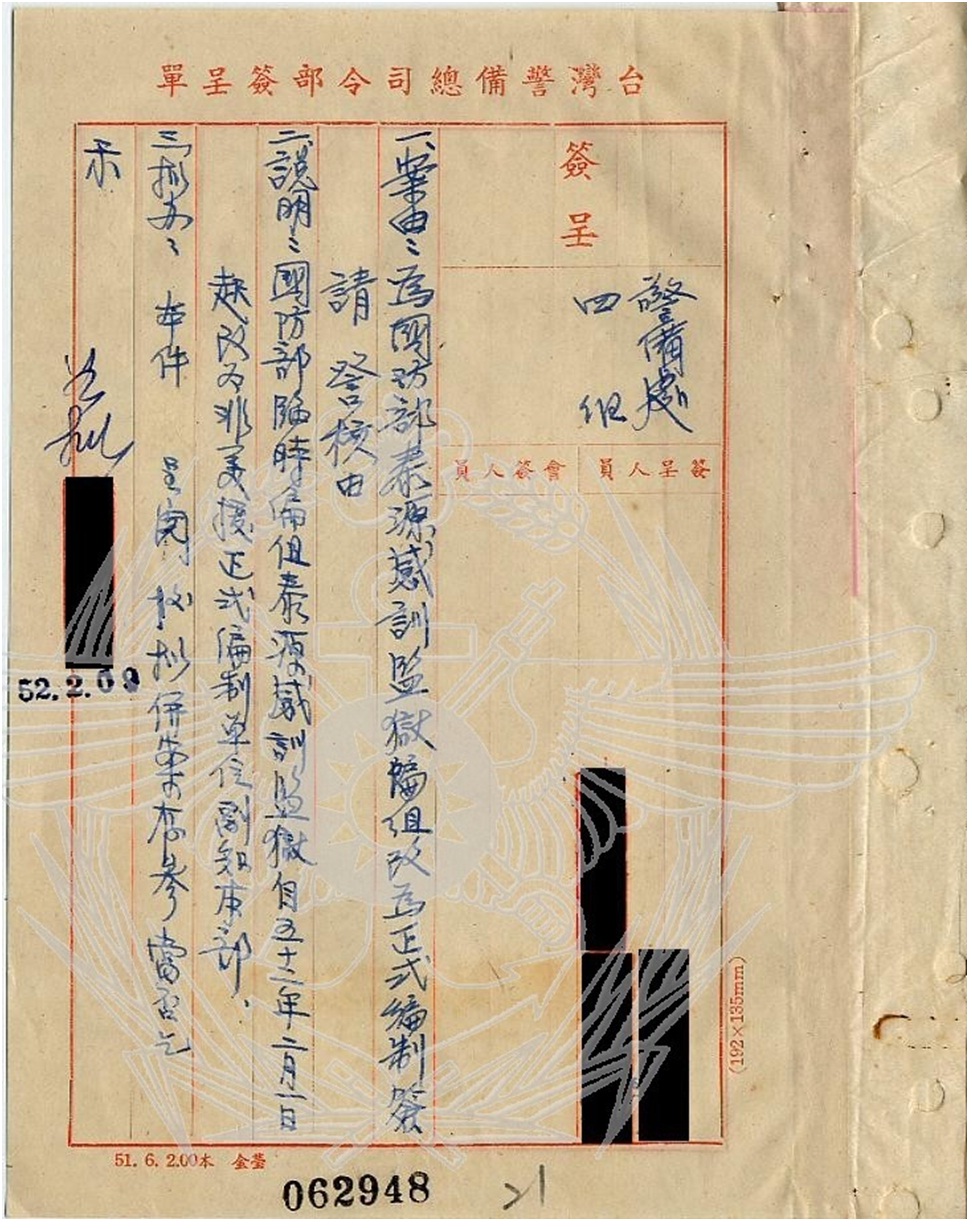 台灣警備總司令部簽呈單
簽呈
警備處
四組
簽呈人員
會簽人員
一、案由：為國防部泰源感訓監獄編組改為正式編制簽
請 詧核由
二、說明：國防部臨時編組泰源感訓監獄自五十二年二月一日
起改為非美援正式編制單位副知本部、
三、擬办： 本件 呈閱後擬併案存參當否乞
示
52.2.09
(192×135mm)
51. 6. 2.00本 金瑩
062948
21